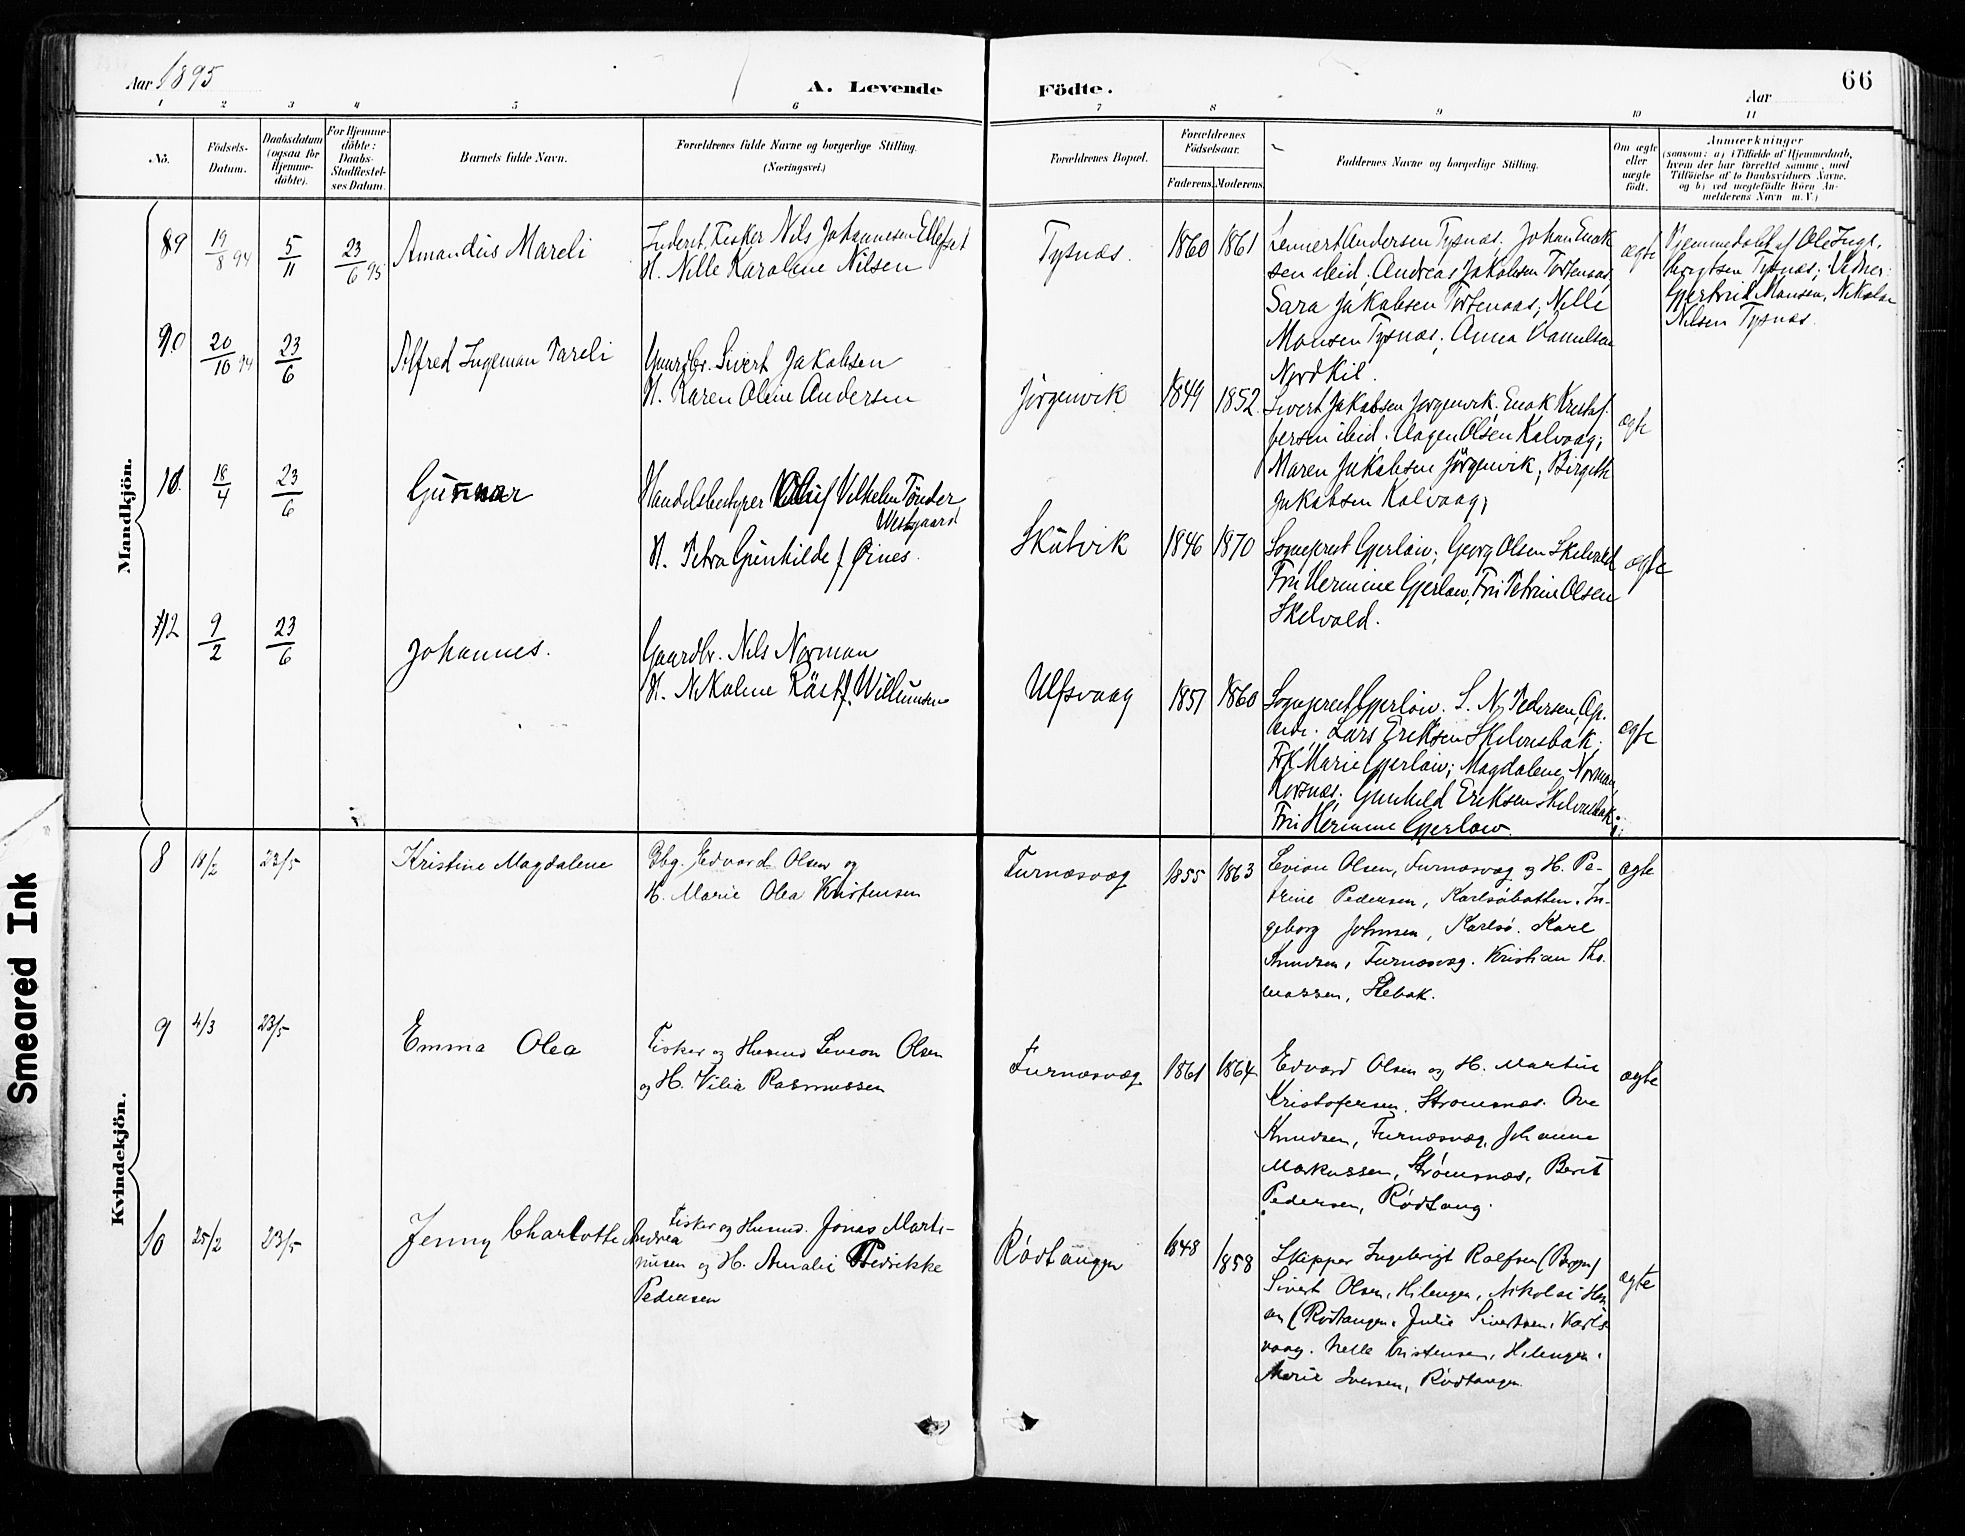 Aar 1895
A. Levende
Födte.
Aar
66
1 2 3 4 5 6 7 8 9 10 11
No.
Födsels-
Datum.
Daabsdatum
(ogsaa for
Hjemme-
döbte).
For Hjemme-
döbte:
Daabs-
Stadfæstel-
ses Datum.
Barnets fulde Navn.
Forældrenes fulde Navne og borgerlige Stilling.
(Næringsvei.)
Forældrenes Bopæl.
Forældrenes
Födselsaar.
Faderens. Moderens.
Faddernes Navne og borgerlige Stilling.
Om ægte
eller
uægte
födt.
Anmærkninger
(saasom: a) i Tilfælde af Hjemmedaab,
hvem der har forrettet samme, med
Tilföielse af to Daabsvidners Navne,
og b) ved uægtefödte Börn An-
melderens Navn m. V.)
Mandkjön.
89
19/8 94
5/11
23/6 95
Amandus Mareli
Inderst, Fisker Nils Johannesen Ellefsat
H. Nille Karoline Nilsen
Tysnæs.
1860 1861
Lennert Andersen Tysnæs. Johan Enok
sen ibid. Andreas Jakobsen Tortenaas,
Sara Jakobsen Tortenaas; Nille
Monsen Tysnæs. Anna
Nordkil.
ægte
Hjemmedøbt af Ole Inge-
brigtsen Tysnæs; Vidner:
Monsen, Nikolai
Nilsen Tysnæs.
90
20/10 94
23/6
Alfred Ingeman Pareli
Gaardbr. Sivert Jakobsen
H. Karen Oline Andersen
Jørgenvik
1849 1852.
Sivert Jakobsen Jørgenvik. Enok Kristof-
fersen ibid. Aagen Olsen Kalvaag;
Maren Jakobsen Jörgenvik, Birgithe
Jakobsen Kalvaag;
ægte
18/4
23/6
Gunnar
Handelsbestyrer Oluf Vilhelm Tönder
Westgaard
H. Petra Gunhilde f. Øines.
Skutvik
1846 1870
Sogneprest Gjerløw; Georg Olsen Skelvold
Fru Hermine Gjerløw, Fru Petrine Olsen
Skelvold.
ægte
12
9/2
23/6
Johannes.
Gaardbr. Nils Norman
H. Nikoline Räst f. Willumsen
Ulfsvaag
1851 1860
Sogneprest Gjerløw. L. N. Pedersen,
Lars Eriksen Skelvesbak;
Frk Marie Gjerløw; Magdalene Norman,
Korsnæs; Gunhild Eriksen Skelvesbak;
Fru Hermine Gjerløw
ægte
Kvindekjön.
8
18/2
23/5
Kristine Magdalene
Gbg. Edvard Olsen og
H. Marie Olea Kristensen
Furnæsvæg
1855 1863
Levion Olsen, Furnæsvæg og H. Pe-
trine Pedersen, Karlsöbotten. In-
geborg Johnsen, Karlsö. Karl
Knudsen, Furnæsvæg. Kristian Tho-
massen, Stebak.
ægte
9
4/3
23/5
Emma Olea
Fisker og Husmd Levion Olsen
og H. Vilia Rasmussen
Furnæsvæg
1861 1864
Edvard Olsen og H. Martine
Kristofersen, Strömsnæs. Ove
Knudsen, Furnæsvæg, Johanne
Markussen, Strømsnæs, Berit
Pedersen, Rødtang.
ægte
10
25/2
23/5
Jenny Charlotte Andrea
Fisker og Husmd. Jonas Marti-
nusen og H. Amalie Fredrikke
Pedersen
Rødtangen
1848 1858
Skipper Ingebrigt Rolfsen
Sivert Olsen, Hilengen, Nikolai Han-
sen Rødtangen. Julie Sivertsen, Karls-
vaag. Nelle Kristensen, Hilengen.
Marie Iversen, Rødtangen.
ægte
Smeared Ink